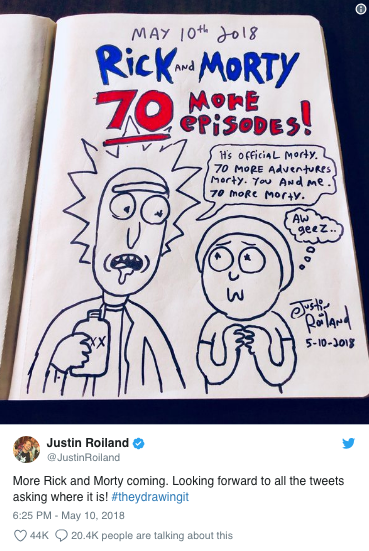 MAY 10th 2018
RICK AND MORTY
70 MORE
EPISODES!
It's OFFICIAL MORTY.
70 MORE ADVENTURES
MORTY. YOU AND ME.
70 MORE MORTY.
AW
geez..
XX
Justin
Roiland
5-10-2018
Justin Roiland
@JustinRoiland
More Rick and Morty coming. Looking forward to all the tweets
asking where it is! #theydrawingit
6:25 PM - May 10, 2018
44K 20.4K people are talking about this